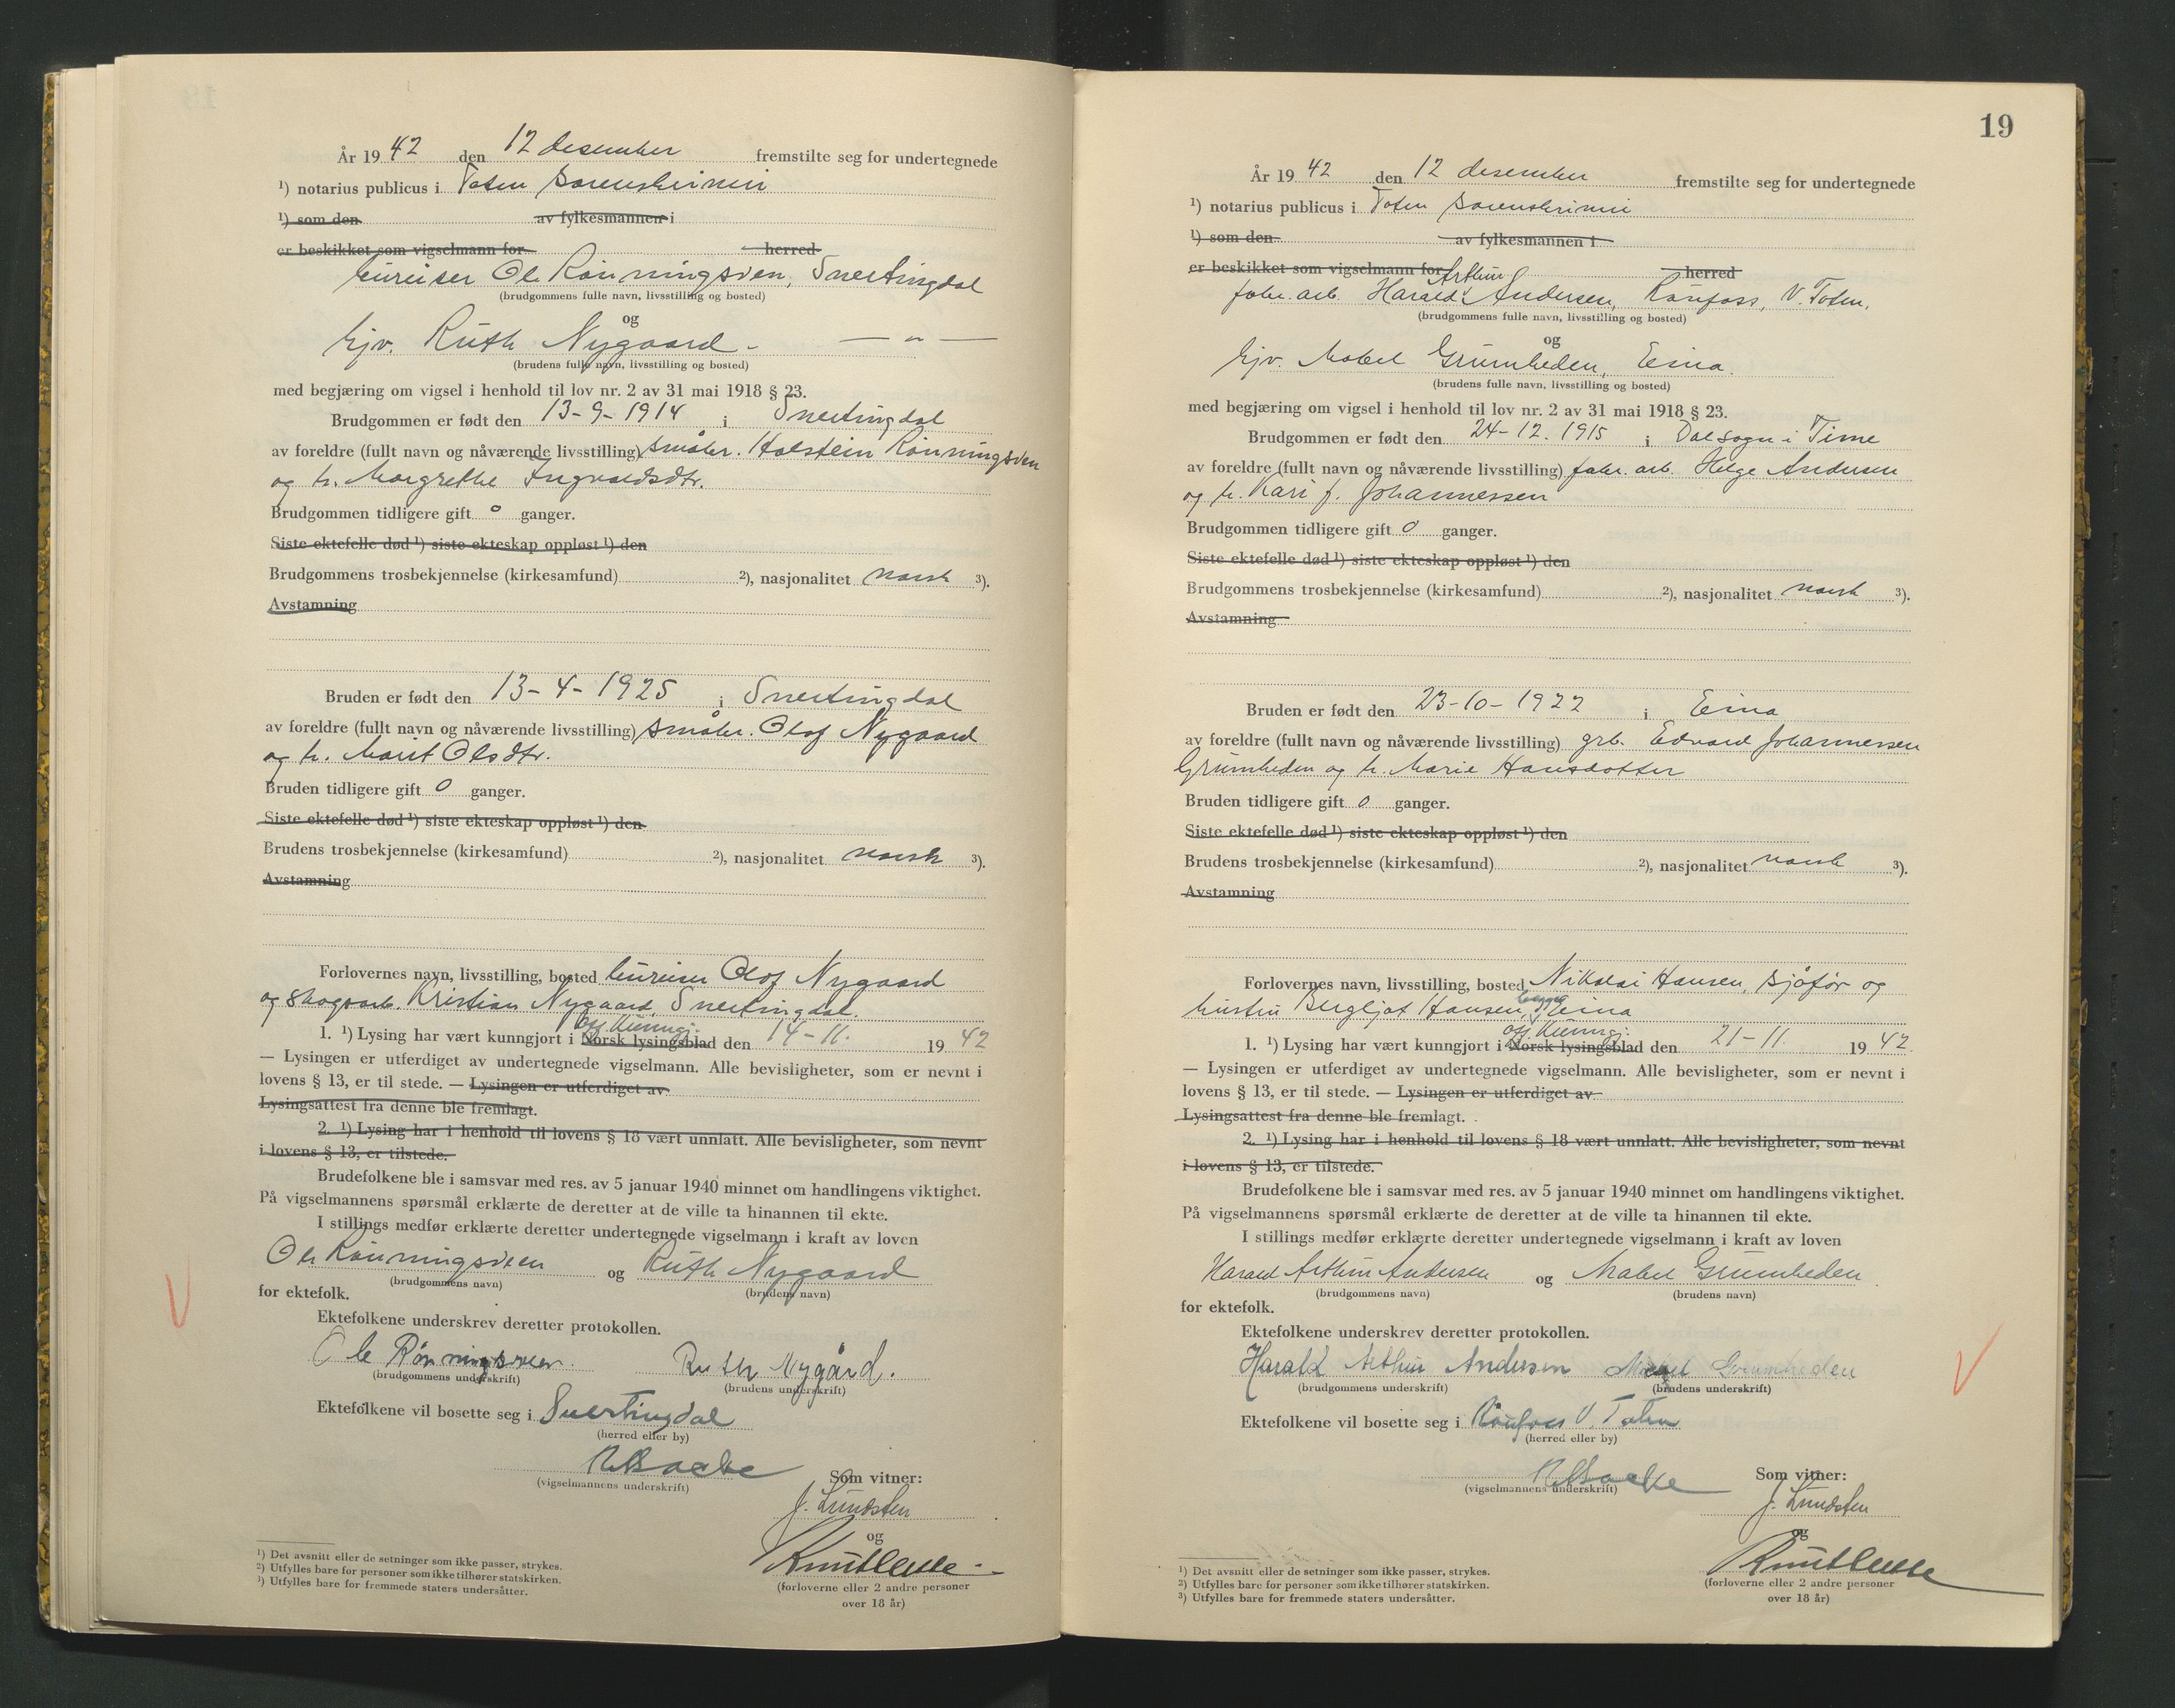 År 19 42 den 12 desember fremstilte seg for undertegnede
¹) notarius publicus i Toten sorenskriveri
¹) som den av fylkesmannen i
er beskikket som vigselmann for herred
Ole Rønningsveen, Snertingdal
(brudgommens fulle navn, livsstilling og bosted)
og
hjv. Ruth Nygaard — " —
(brudens fulle navn, livsstilling og bosted)
med begjæring om vigsel i henhold til lov nr. 2 av 31 mai 1918 § 23.
Brudgommen er født den 13-9-1914 i Snertingdal
av foreldre (fullt navn og nåværende livsstilling) småbr. Holstein Rønningsveen
og h. Margrethe Ingvaldsdtr.
Brudgommen tidligere gift 0 ganger.
Siste ektefelle død ¹) siste ekteskap oppløst ¹) den
Brudgommens trosbekjennelse (kirkesamfund) ²), nasjonalitet norsk ³).
Avstamning
Bruden er født den 13-4-1925 i Snertingdal
av foreldre (fullt navn og nåværende livsstilling) småbr. Olaf Nygaard
og h. Marit Olsdtr.
Bruden tidligere gift 0 ganger.
Siste ektefelle død ¹) siste ekteskap oppløst ¹) den
Brudens trosbekjennelse (kirkesamfund) ²), nasjonalitet norsk ³).
Avstamning
Forlovernes navn, livsstilling, bosted Olaf Nygaard
og skogsarb. Kristian Nygaard, Snertingdal.
off. kunngj.
1. ¹) Lysing har vært kunngjort i Norsk lysingsblad den 14-11. 19 42
— Lysingen er utferdiget av undertegnede vigselmann. Alle bevisligheter, som er nevnt i
lovens § 13, er til stede. — Lysingen er utferdiget av
Lysingsattest fra denne ble fremlagt.
2. ¹) Lysing har i henhold til lovens § 18 vært unnlatt. Alle bevisligheter, som nevnt
i lovens § 13, er tilstede.
Brudefolkene ble i samsvar med res. av 5 januar 1940 minnet om handlingens viktighet.
På vigselmannens spørsmål erklærte de deretter at de ville ta hinannen til ekte.
I stillings medfør erklærte deretter undertegnede vigselmann i kraft av loven
Ole Rønningsveen og Ruth Nygaard
(brudgommens navn) (brudens navn)
for ektefolk.
Ektefolkene underskrev deretter protokollen.
Ole Rønningsveen. Ruth Nygård.
(brudgommens underskrift) (brudens underskrift)
Ektefolkene vil bosette seg i Snertingdal
(herred eller by)
(vigselmannens underskrift)
Som vitner:
J. Lundsten
og
(forloverne eller 2 andre personer
over 18 år)
¹) Det avsnitt eller de setninger som ikke passer, strykes.
²) Utfylles bare for personer som ikke tilhører statskirken.
³) Utfylles bare for fremmede staters undersåtter.
19
År 19 42 den 12 desember fremstilte seg for undertegnede
¹) notarius publicus i Toten sorenskriveri
¹) som den av fylkesmannen i
er beskikket som vigselmann for herred
Arthur
fabr. arb. Harald Andersen, Raufoss, V. Toten.
(brudgommens fulle navn, livsstilling og bosted)
og
hjv. Mabel Grumheden, Eina.
(brudens fulle navn, livsstilling og bosted)
med begjæring om vigsel i henhold til lov nr. 2 av 31 mai 1918 § 23.
Brudgommen er født den 24-12. 1915 i sogn i Time
av foreldre (fullt navn og nåværende livsstilling) fabr. arb. Helge Andersen
og h. Kari f. Johannessen
Brudgommen tidligere gift 0 ganger.
Siste ektefelle død ¹) siste ekteskap oppløst ¹) den
Brudgommens trosbekjennelse (kirkesamfund) ²), nasjonalitet norsk ³).
Avstamning
Bruden er født den 23-10-1922 i Eina
av foreldre (fullt navn og nåværende livsstilling) grb. Edvard Johannessen
Grumheden og h. Marie Hansdotter
Bruden tidligere gift 0 ganger.
Siste ektefelle død ¹) siste ekteskap oppløst ¹) den
Brudens trosbekjennelse (kirkesamfund) ²), nasjonalitet norsk ³).
Avstamning
Forlovernes navn, livsstilling, bosted Nikolai Hansen, sjåfør og
begge
hustru Bergljot Hansen, Eina
off. kunngj.
1. ¹) Lysing har vært kunngjort i Norsk lysingsblad den 21-11. 19 42.
— Lysingen er utferdiget av undertegnede vigselmann. Alle bevisligheter, som er nevnt i
lovens § 13, er til stede. — Lysingen er utferdiget av
Lysingsattest fra denne ble fremlagt.
2. ¹) Lysing har i henhold til lovens § 18 vært unnlatt. Alle bevisligheter, som nevnt
i lovens § 13, er tilstede.
Brudefolkene ble i samsvar med res. av 5 januar 1940 minnet om handlingens viktighet.
På vigselmannens spørsmål erklærte de deretter at de ville ta hinannen til ekte.
I stillings medfør erklærte deretter undertegnede vigselmann i kraft av loven
Harald Arthur Andersen og Mabel Grumheden
(brudgommens navn) (brudens navn)
for ektefolk.
Ektefolkene underskrev deretter protokollen.
Harald Arthur Andersen Mabel Grumheden
(brudgommens underskrift) (brudens underskrift)
Ektefolkene vil bosette seg i Raufoss V. Toten
(herred eller by)
(vigselmannens underskrift)
Som vitner:
J. Lundsten
og
(forloverne eller 2 andre personer
over 18 år)
¹) Det avsnitt eller de setninger som ikke passer, strykes.
²) Utfylles bare for personer som ikke tilhører statskirken.
³) Utfylles bare for fremmede staters undersåtter.